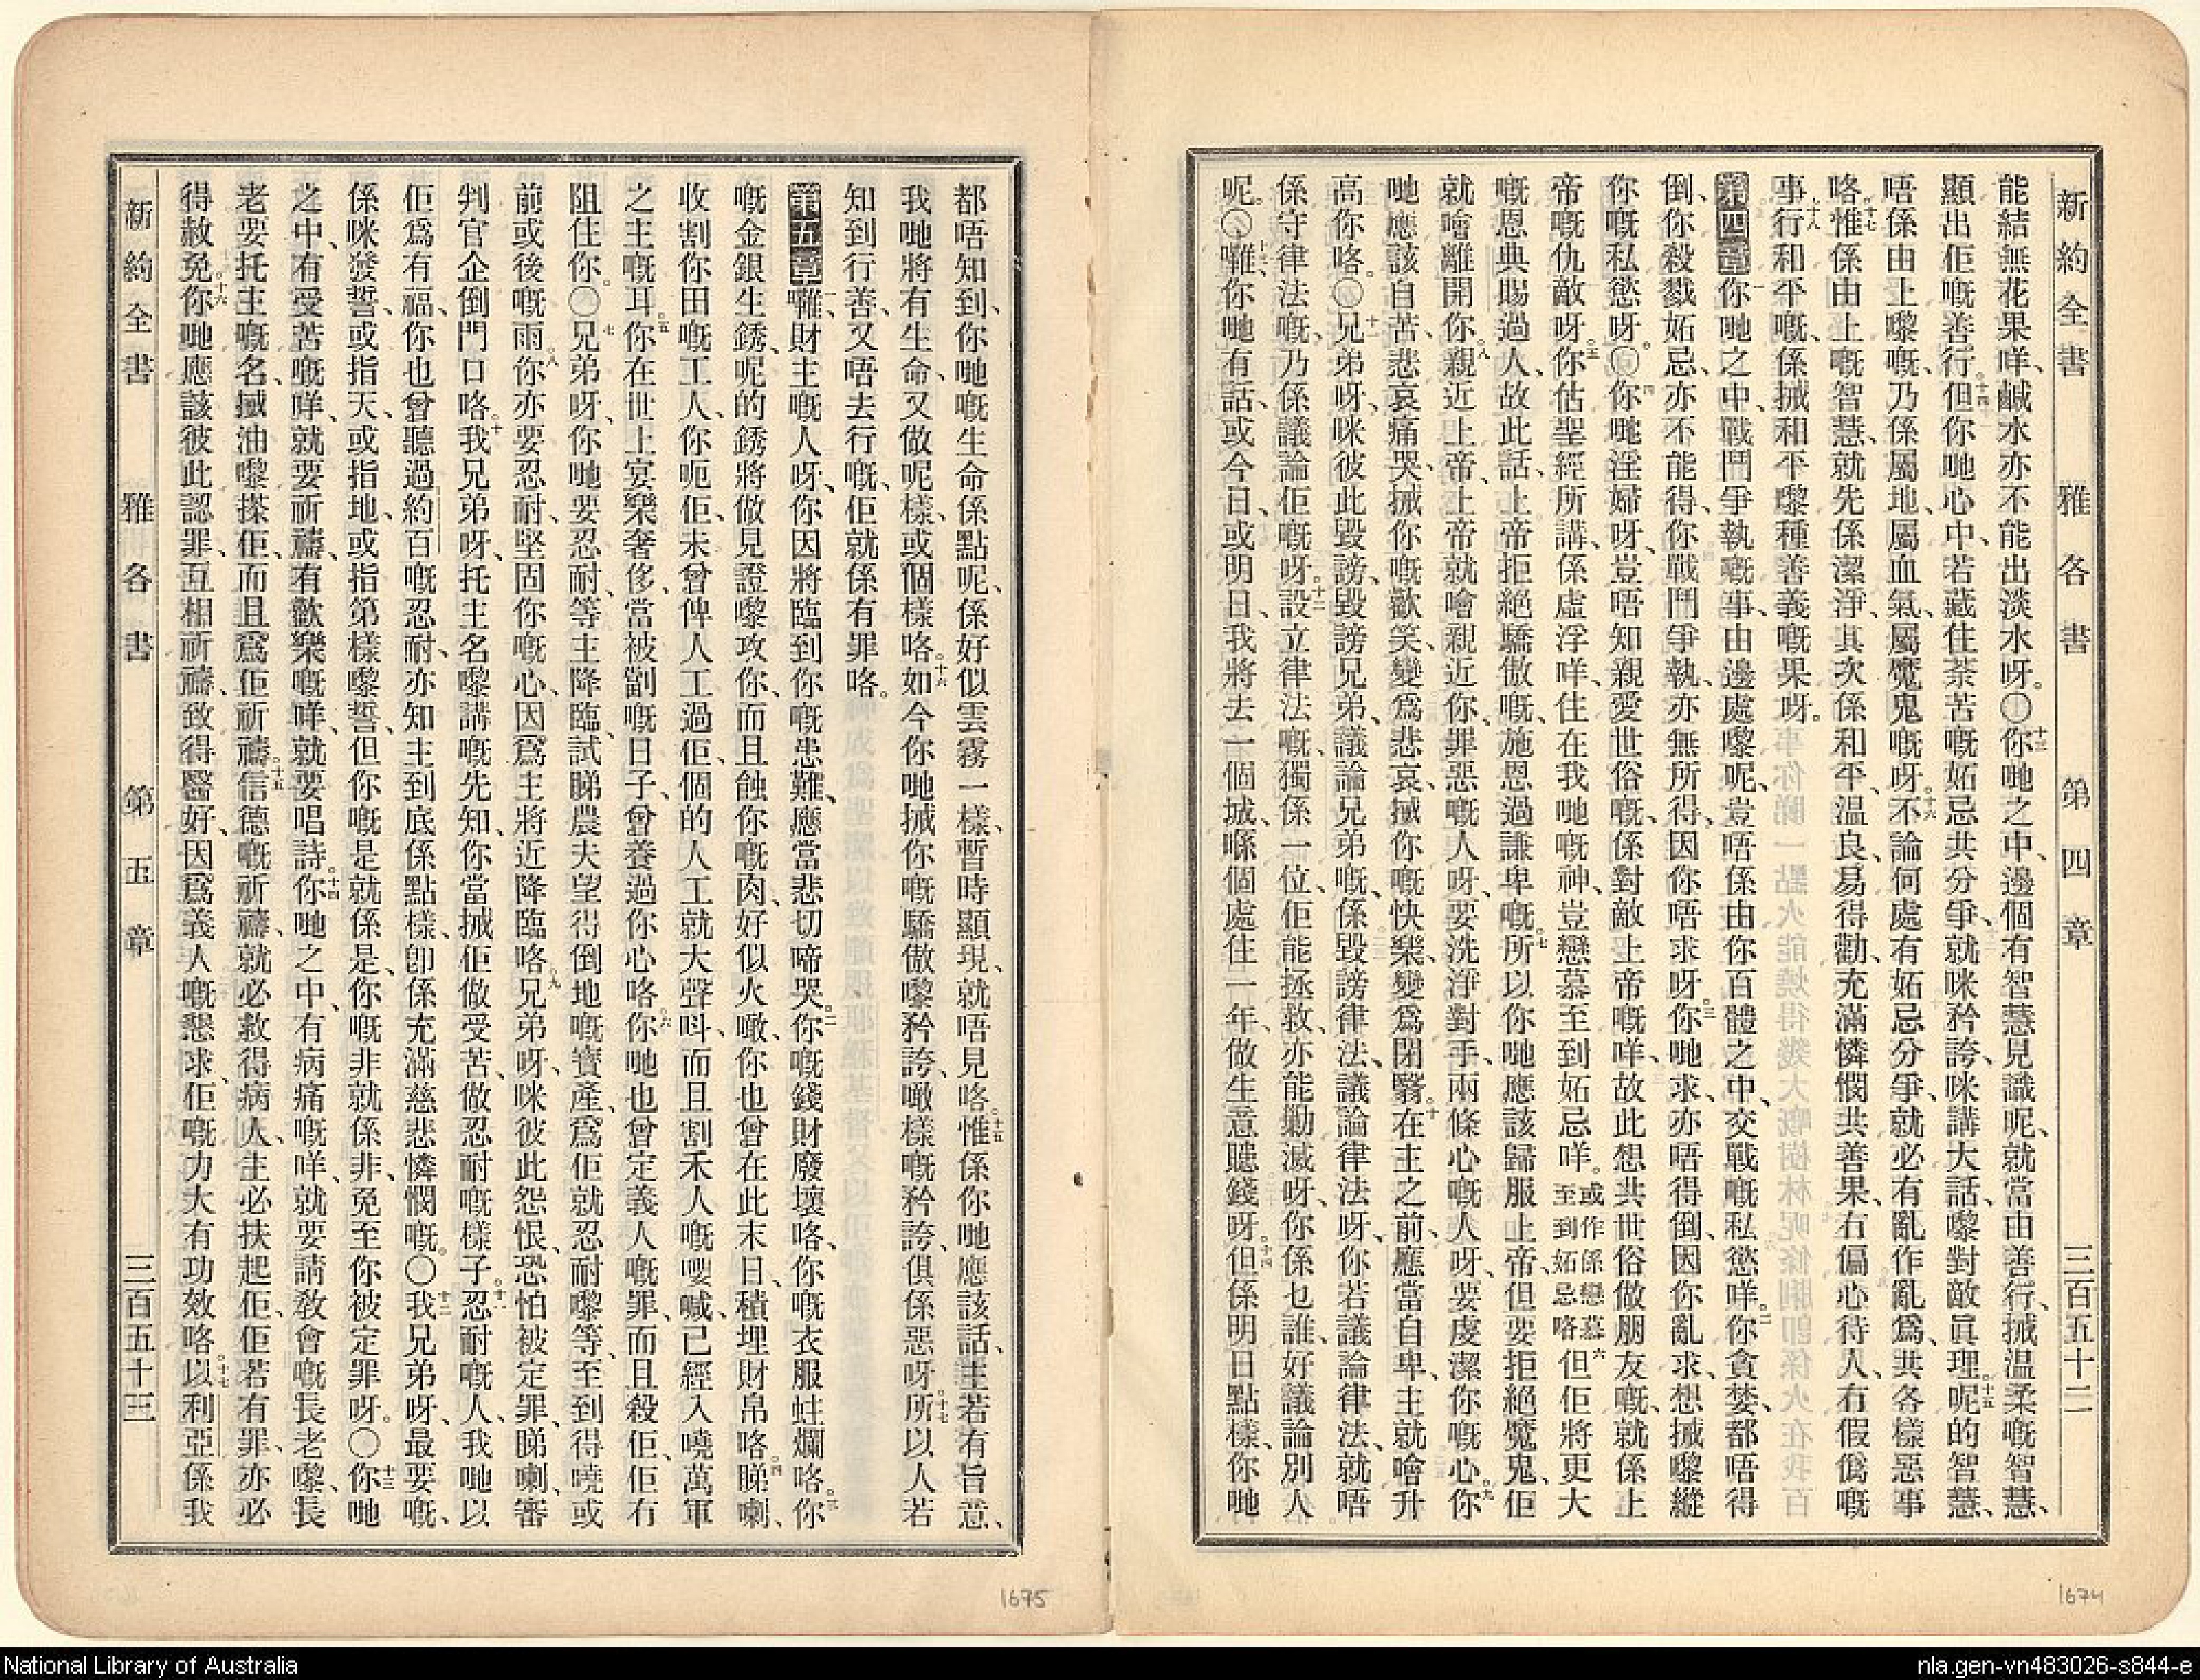 新約全書 雅各書 第四章 三百五十二
能結無花果咩、鹹水亦不能出淡水呀。〇十三你哋之中、邊個有智慧見識呢、就當由善行、搣温柔嘅智慧、
顯出佢嘅善行。十四但你哋心中、若藏住荼苦嘅妬忌共分爭、就咪矜誇、咪講大話、嚟對敵眞理。十五呢的智慧、
唔係由上嚟嘅、乃係屬地、屬血氣、屬魔鬼嘅呀。十六不論何處有妬忌分爭、就必有亂作亂爲、共各樣惡事
咯。十七惟係由上嘅智慧、就先係潔淨、其次係和平、温良、易得勸、充滿憐憫共善果、冇偏心待人、冇假僞嘅
事。十八行和平嘅、係搣和平嚟種善義嘅果呀。
第四章 一你哋之中、戰鬥爭執嘅事、由邊處嚟呢、豈唔係由你百體之中、交戰嘅私慾咩。二你貪婪、都唔得
倒、你殺戮妬忌、亦不能得、你戰鬥爭執、亦無所得、因你唔求呀。三你哋求、亦唔得倒、因你亂求、想搣嚟縱
你嘅私慾呀。〇四你哋淫婦呀、豈唔知親愛世俗嘅、係對敵上帝嘅咩、故此想共世俗做朋友嘅、就係上
帝嘅仇敵呀。五你估聖經所講、係虛浮咩、住在我哋嘅神、豈戀慕至到妬忌咩。或作係戀慕至到妬忌咯六但佢將更大
嘅恩典賜過人、故此話、上帝拒絕驕傲嘅、施恩過謙卑嘅。七所以你哋應該歸服上帝、但要拒絕魔鬼、佢
就噲離開你。八親近上帝、上帝就噲親近你、罪惡嘅人呀、要洗淨對手、兩條心嘅人呀、要虔潔你嘅心。九你
哋應該自苦、悲哀痛哭、搣你嘅歡笑、變爲悲哀、搣你嘅快樂、變爲閉翳。十在主之前、應當自卑、主就噲升
高你咯。〇十一兄弟呀、咪彼此毀謗、毀謗兄弟、議論兄弟嘅、係毀謗律法、議論律法呀、你若議論律法、就唔
係守律法嘅、乃係議論佢嘅呀。十二設立律法嘅、獨係一位、佢能拯救、亦能勦滅呀、你係乜誰、好議論別人
呢。〇十三囉、你哋有話、或今日、或明日、我將去一個城、喺個處住一年、做生意、賺錢呀。十四但係明日點樣、你哋
都唔知到、你哋嘅生命係點呢、係好似雲霧一樣、暫時顯現、就唔見咯。十五惟係你哋應該話、主若有旨意、
我哋將有生命、又做呢樣、或個樣咯。十六如今你哋搣你嘅驕傲嚟矜誇、噉樣嘅矜誇、俱係惡呀。十七所以人若
知到行善、又唔去行嘅、佢就係有罪咯。
第五章 一囉、財主嘅人呀、你因將臨到你嘅患難、應當悲切啼哭。二你嘅錢財廢壞咯、你嘅衣服蛀爛咯。三你
嘅金銀生銹、呢的銹將做見證嚟攻你、而且蝕你嘅肉、好似火噉、你也曾在此末日、積埋財帛咯。四睇喇、
收割你田嘅工人、你呃佢、未曾俾人工過佢、個的人工就大聲呌、而且割禾人嘅嘤喊、已經入嘵萬軍
之主嘅耳。五你在世上宴樂奢侈、當被劏嘅日子、曾養過你心咯。六你哋也曾定義人嘅罪、而且殺佢、佢冇
阻住你。〇七兄弟呀、你哋要忍耐、等主降臨、試睇農夫望得倒地嘅寶產、爲佢就忍耐嚟等、至到得嘵或
前或後嘅雨。八你亦要忍耐、堅固你嘅心、因爲主將近降臨咯。九兄弟呀、咪彼此怨恨、恐怕被定罪、睇喇、審
判官企倒門口咯。十我兄弟呀、托主名嚟講嘅先知、你當搣佢做受苦、做忍耐嘅樣子。十一忍耐嘅人、我哋以
佢爲有福、你也曾聽過約百嘅忍耐、亦知主到底係點樣、卽係充滿慈悲憐憫嘅。〇十二我兄弟呀、最要嘅、
係咪發誓、或指天、或指地、或指第樣嚟誓、但你嘅是就係是、你嘅非就係非、免至你被定罪呀。〇十三你哋
之中、有受苦嘅咩、就要祈禱、有歡樂嘅咩、就要唱詩。十四你哋之中、有病痛嘅咩、就要請敎會嘅長老嚟、長
老要托主嘅名、搣油嚟搽佢、而且爲佢祈禱。十五信德嘅祈禱、就必救得病人、主必扶起佢、佢若有罪、亦必
得赦免。十六你哋應該彼此認罪、互相祈禱、致得醫好、因爲義人嘅懇求、佢嘅力大有功效咯。十七以利亞係我
新約全書 雅各書 第五章 三百五十三
1675
1674
National Library of Australia
nla.gen-vn483026-s844-e